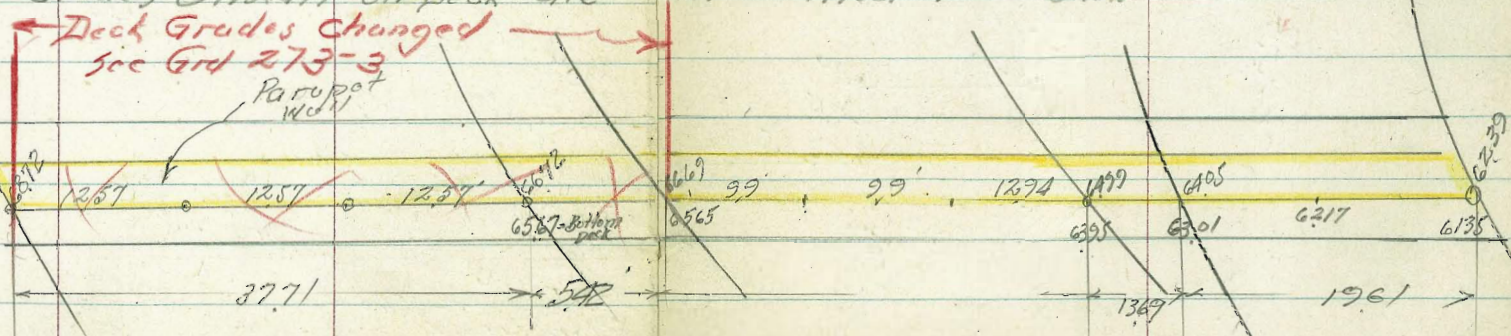 Deck Grades Changed
See Grd 273-3
Parapet
Wall
6872 1257 1257 1257 6672 6669 99' 99' 1294 6499 6405 6239
6567=Bottom
Deck
6565 6395 6301 6217 6135
3771 542 1369 1961